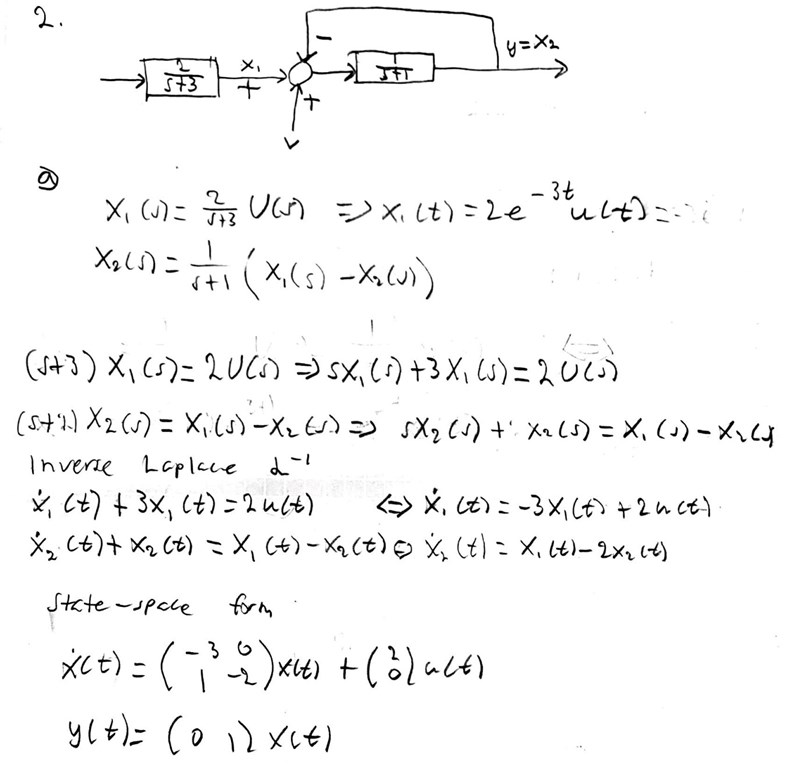 2.
−
y=x₂
2/(s+3) x₁ + 1/(s+1)
+
v
a
X₁(s) = 2/(s+3) U(s) => x₁(t) = 2e^{-3t} u(t) =
X₂(s) = 1/(s+1) (X₁(s) - X₂(s))
(s+3) X₁(s) = 2U(s) => sX₁(s) + 3X₁(s) = 2U(s)
(s+1) X₂(s) = X₁(s) - X₂(s) => sX₂(s) + X₂(s) = X₁(s) - X₂(s)
Inverse Laplace ℒ⁻¹
ẋ₁(t) + 3x₁(t) = 2u(t) <=> ẋ₁(t) = -3x₁(t) + 2u(t)
ẋ₂(t) + x₂(t) = x₁(t) - x₂(t) <=> ẋ₂(t) = x₁(t) - 2x₂(t)
State-space form
ẋ(t) = (-3 0; 1 -2) x(t) + (2; 0) u(t)
y(t) = (0 1) x(t)